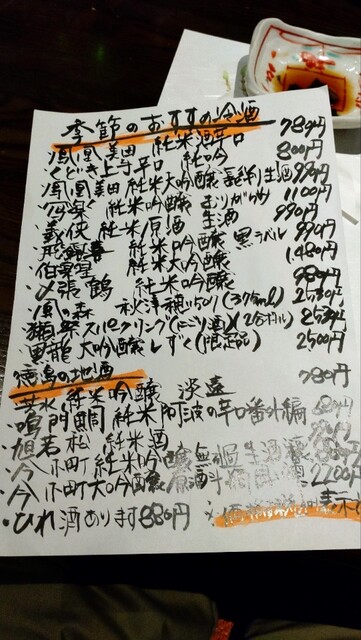 季節のおすすめ冷酒
鳳凰美田 純米酒 辛口 780円
くどき上手 辛口 純吟 800円
鳳凰美田 純米大吟醸 生酒 990円
純米吟醸 むりがらり 1100円
義侠 純米原酒 生酒 990円
純米吟醸 黒ラベル 990円
伯楽星 純米大吟醸 1,480円
〆張鶴 純米吟醸 980円
風の森 秋津穂 2530円
獺祭スパークリング(にごり酒)(2合ボトル) 2530円
黒龍 大吟醸 しずく(限定品) 2500円
徳島の地酒
芳水 純米吟醸 淡遠 780円
・鳴門鯛 純米 阿波の辛口番外編 680円
・旭若松 純米酒
・今小町 純米吟醸 無濾過生酒
・今小町 大吟醸 原酒 2200円
・ひれ酒あります 880円